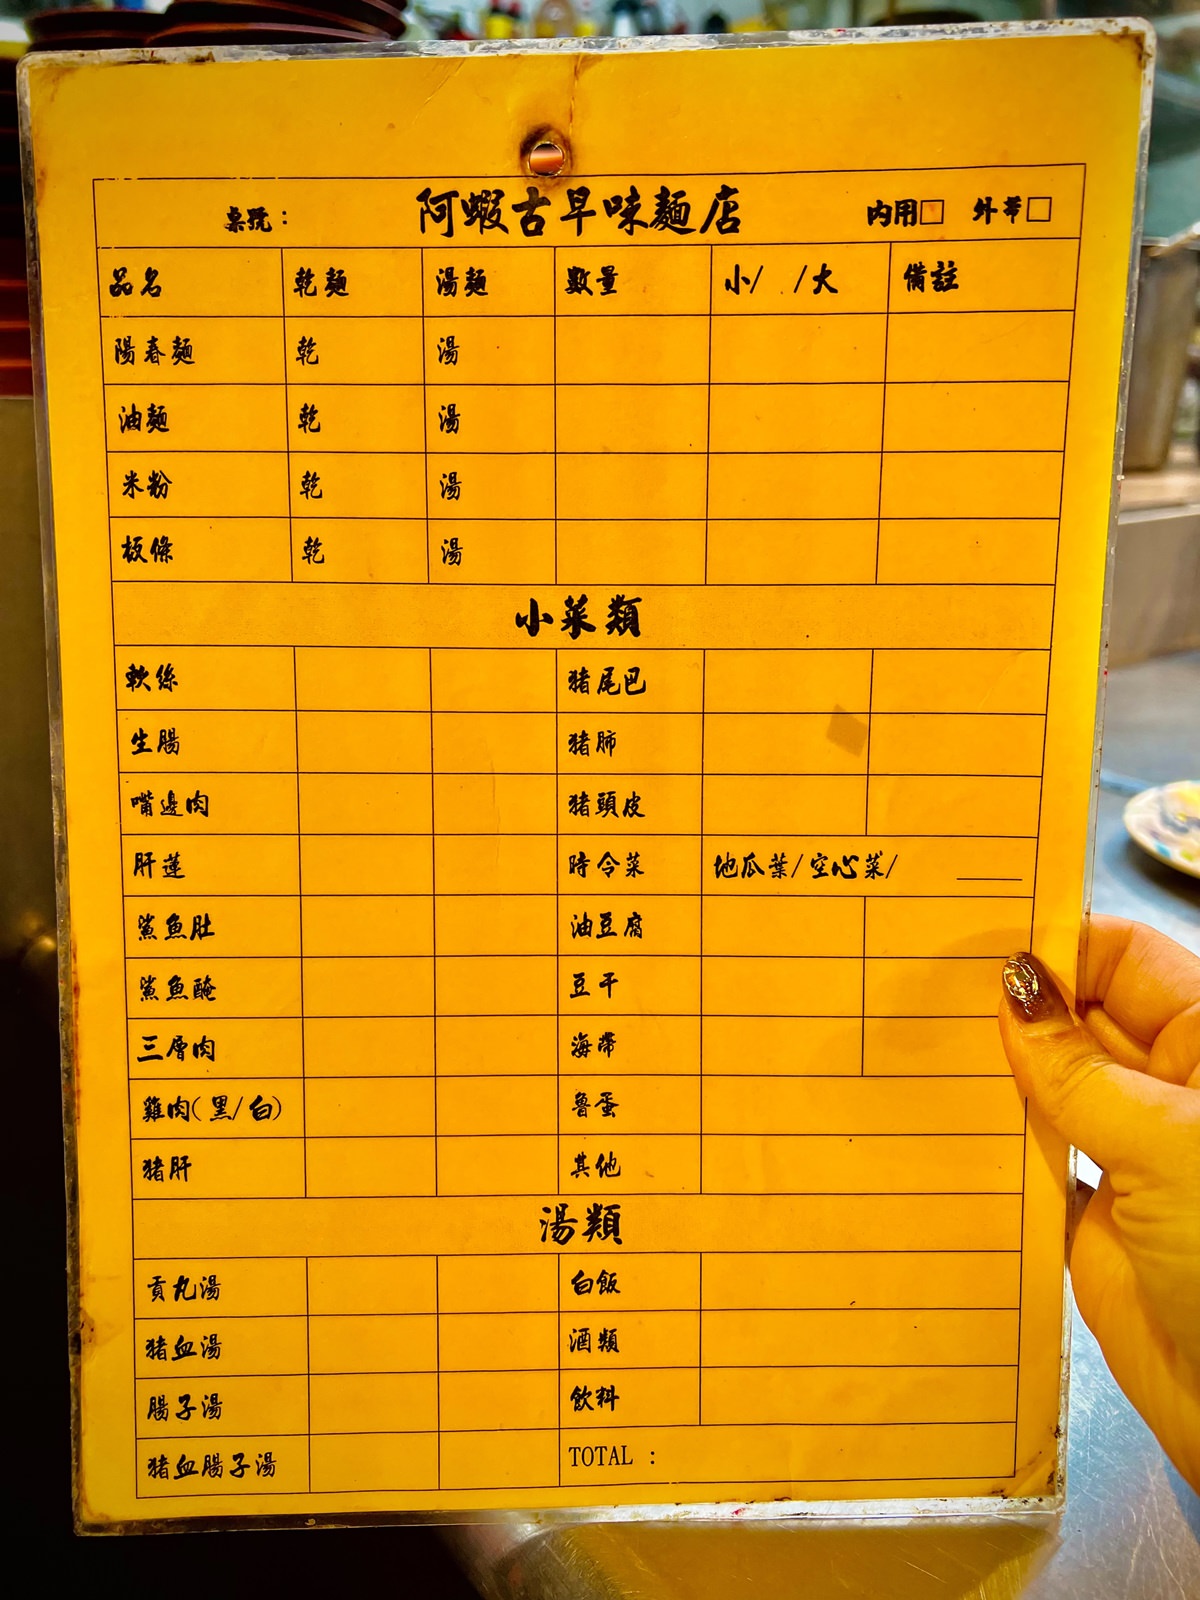 桌號： 阿蝦古早味麵店 內用□ 外帶□
品名 乾麵 湯麵 數量 小/ /大 備註
陽春麵 乾 湯
油麵 乾 湯
米粉 乾 湯
板條 乾 湯
小菜類
軟絲 猪尾巴
生腸 猪肺
嘴邊肉 猪頭皮
肝蓮 時令菜 地瓜葉/空心菜/ ____
鯊魚肚 油豆腐
鯊魚醃 豆干
三層肉 海帶
雞肉(黑/白) 魯蛋
猪肝 其他
湯類
貢丸湯 白飯
猪血湯 酒類
腸子湯 飲料
猪血腸子湯 TOTAL :